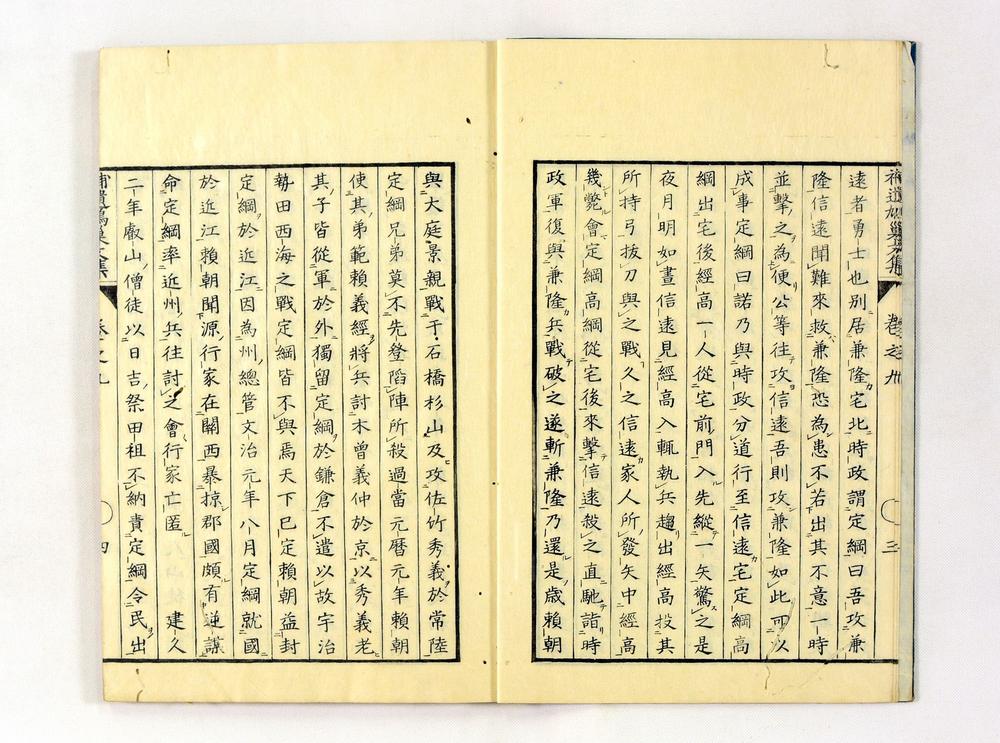 補遺鳩巢文集 卷之九 三
遠者勇士也別居兼隆宅北時政謂定綱曰吾攻兼
隆信遠聞難來救兼隆恐為患不若出其不意一時
並擊之為便公等往攻信遠吾則攻兼隆如此可以
成事定綱曰諾乃與時政分道行至信遠宅定綱高
綱出宅後經高一人從宅前門入先縱一矢驚之是
夜月明如晝信遠見經高入輒執兵趨出經高投其
所持弓拔刀與之戰久之信遠家人所發矢中經高
幾斃會定綱高綱從宅後來擊信遠殺之直馳詣時
政軍復與兼隆兵戰破之遂斬兼隆乃還是歲賴朝
與大庭景親戰于石橋杉山及攻佐竹秀義於常陸
定綱兄弟莫不先登陷陣所殺過當元曆元年賴朝
使其弟範賴義經將兵討木曾義仲於京以秀義老
其子皆從軍於外獨留定綱於鎌倉不遣以故宇治
勢田西海之戰定綱皆不與焉天下已定賴朝益封
定綱於近江因為州總管文治元年八月定綱就國
於近江賴朝聞源行家在關西暴掠郡國頗有逆謀
命定綱率近州兵往討之會行家亡匿 建久
二年叡山僧徒以日吉祭田租不納責定綱令民出
補遺鳩巢文集 卷之九 四